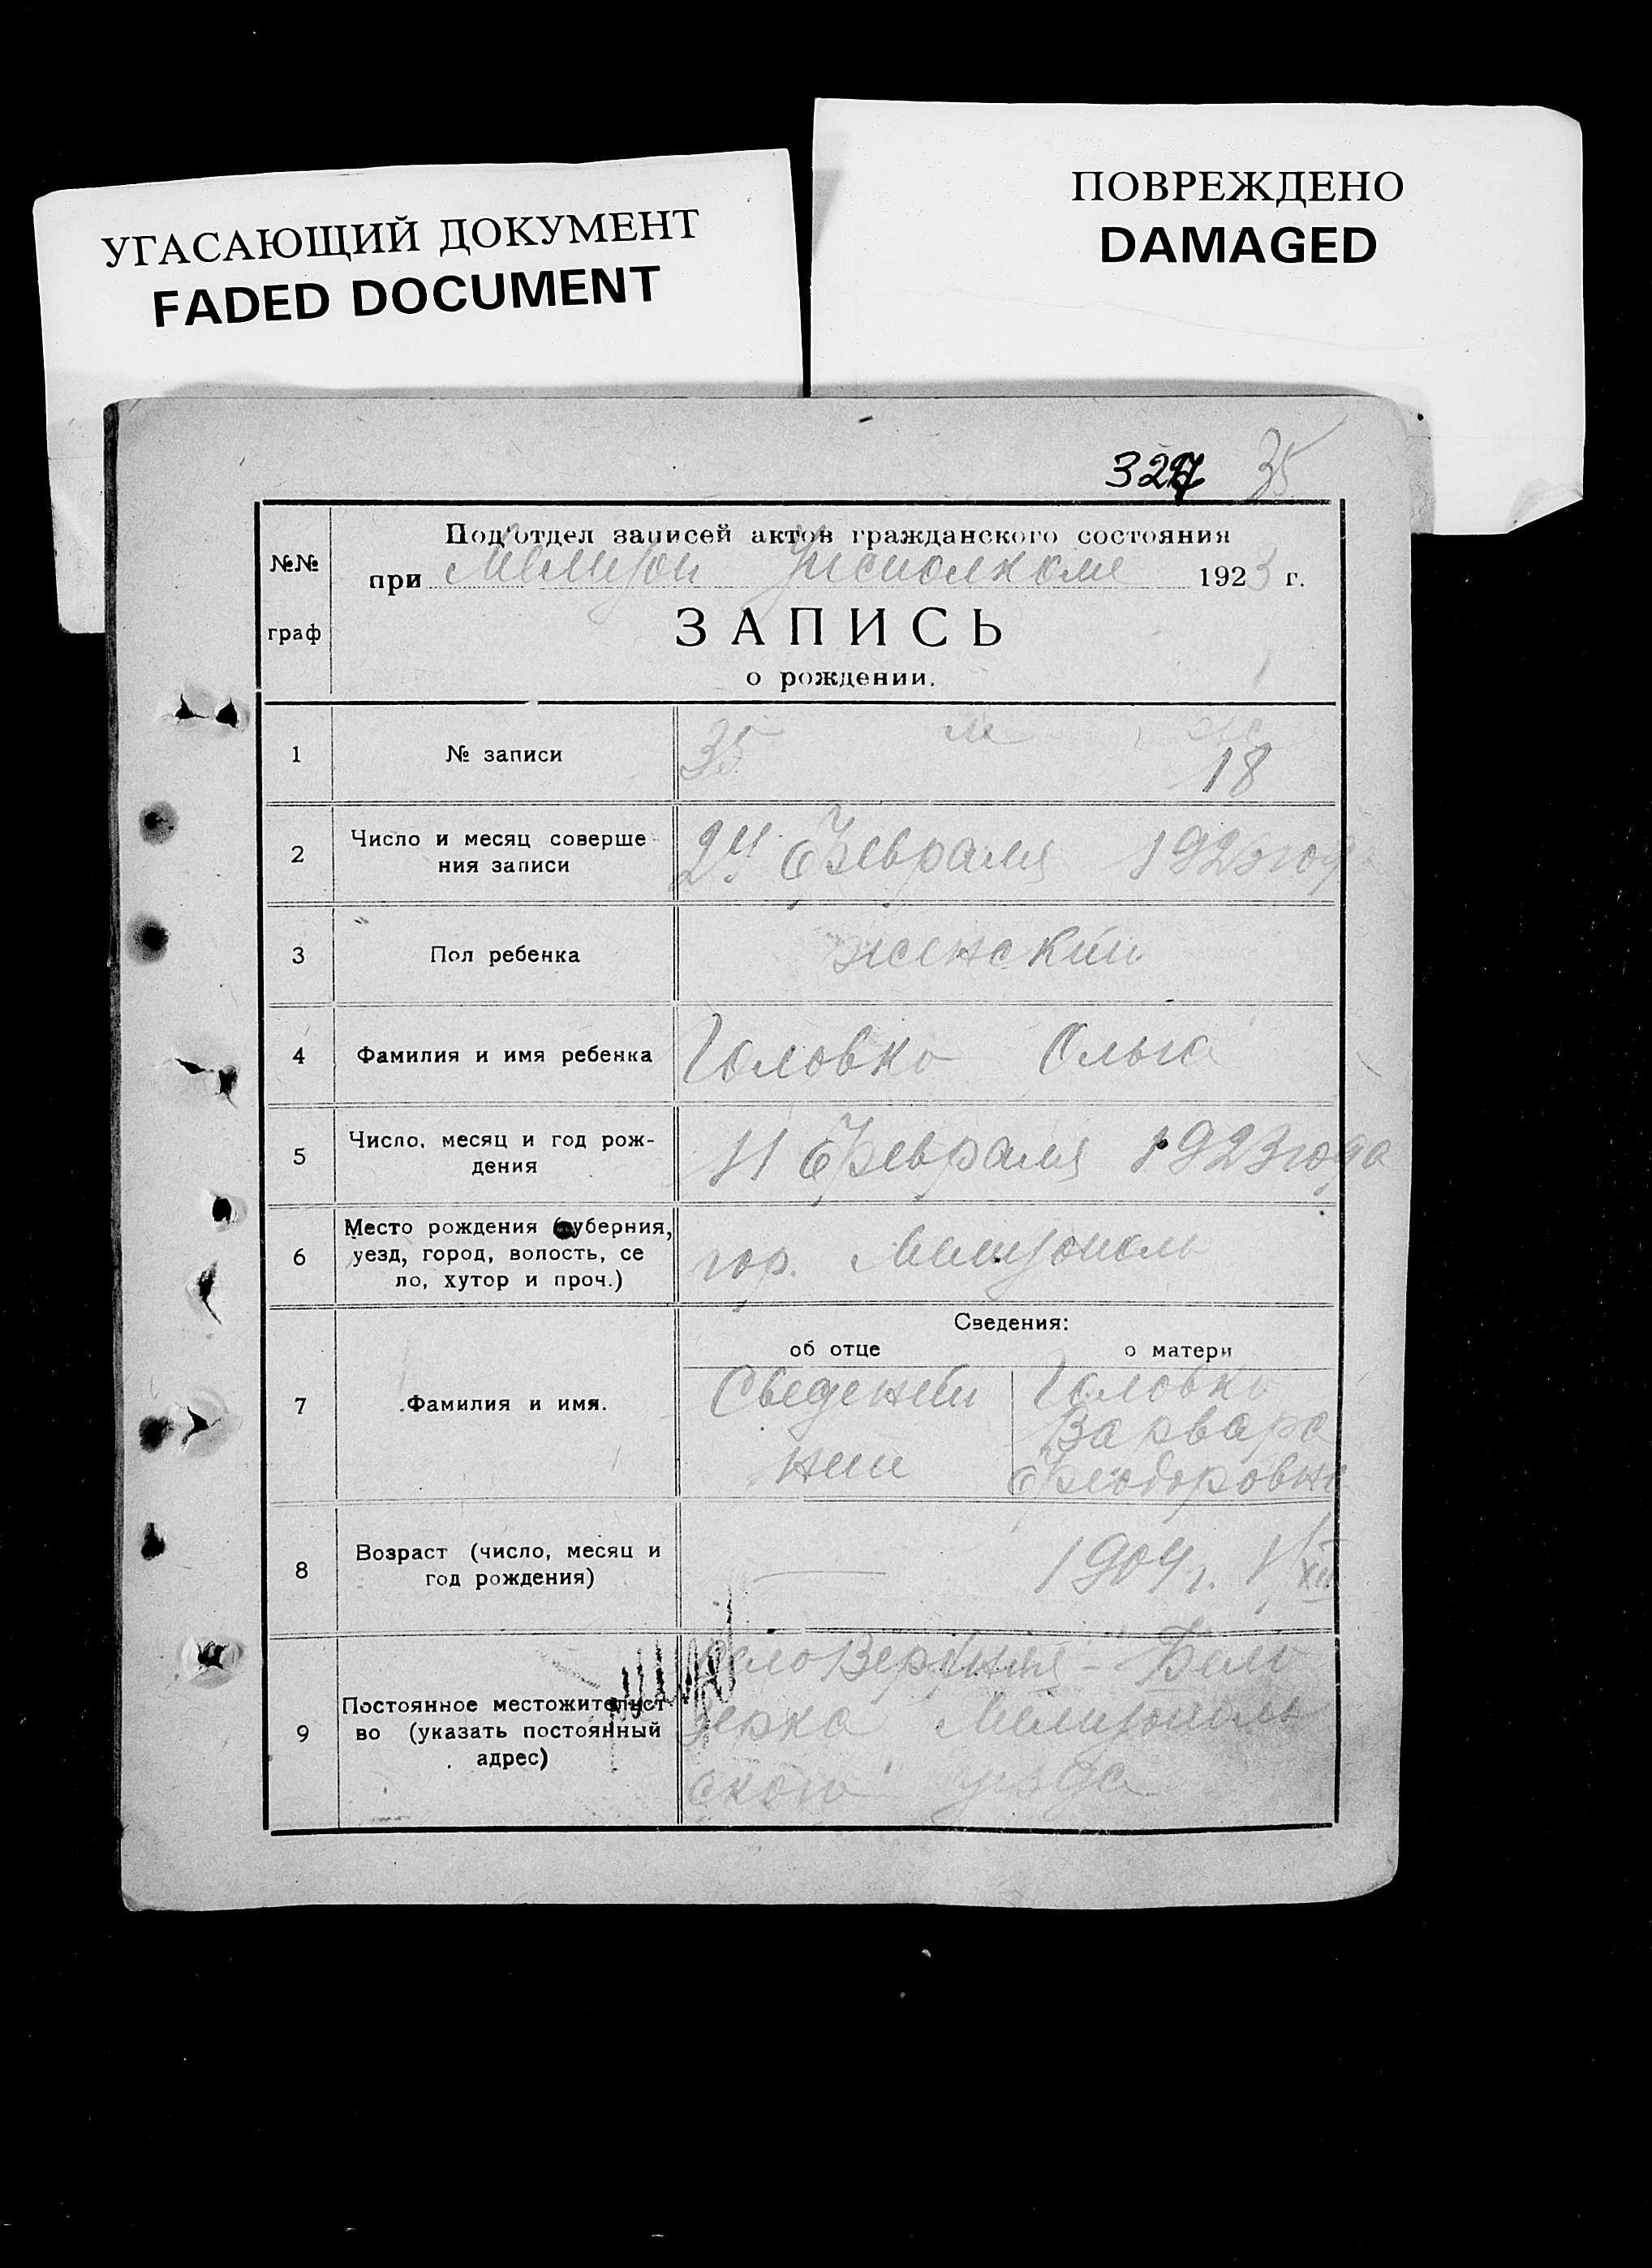 УГАСАЮЩИЙ ДОКУМЕНТ
FADED DOCUMENT
ПОВРЕЖДЕНО
DAMAGED
327 35
№№ граф
Под'отдел записей актов гражданского состояния
при Мелитоп Уисполкоме 1923 г.
ЗАПИСЬ
о рождении.
1 № записи 35 м ж
18
2 Число и месяц соверше
ния записи
24 Февраля 1923 году
3 Пол ребенка женский
4 Фамилия и имя ребенка Головко Ольга
5 Число, месяц и год рож-
дения
11 Февраля 1923 года
6 Место рождения (губерния,
уезд, город, волость, се
ло, хутор и проч.)
гор. Мелитополь
Сведения:
об отце о матери
7 Фамилия и имя.
Сведений
нет
Головко
Варвара
Феодоровна
8 Возраст (число, месяц и
год рождения)
— 1904 г. 1/XII
9 Постоянное местожительст
во (указать постоянный
адрес)
село Верхняя - Бело
зерка Мелитополь
ского уезда